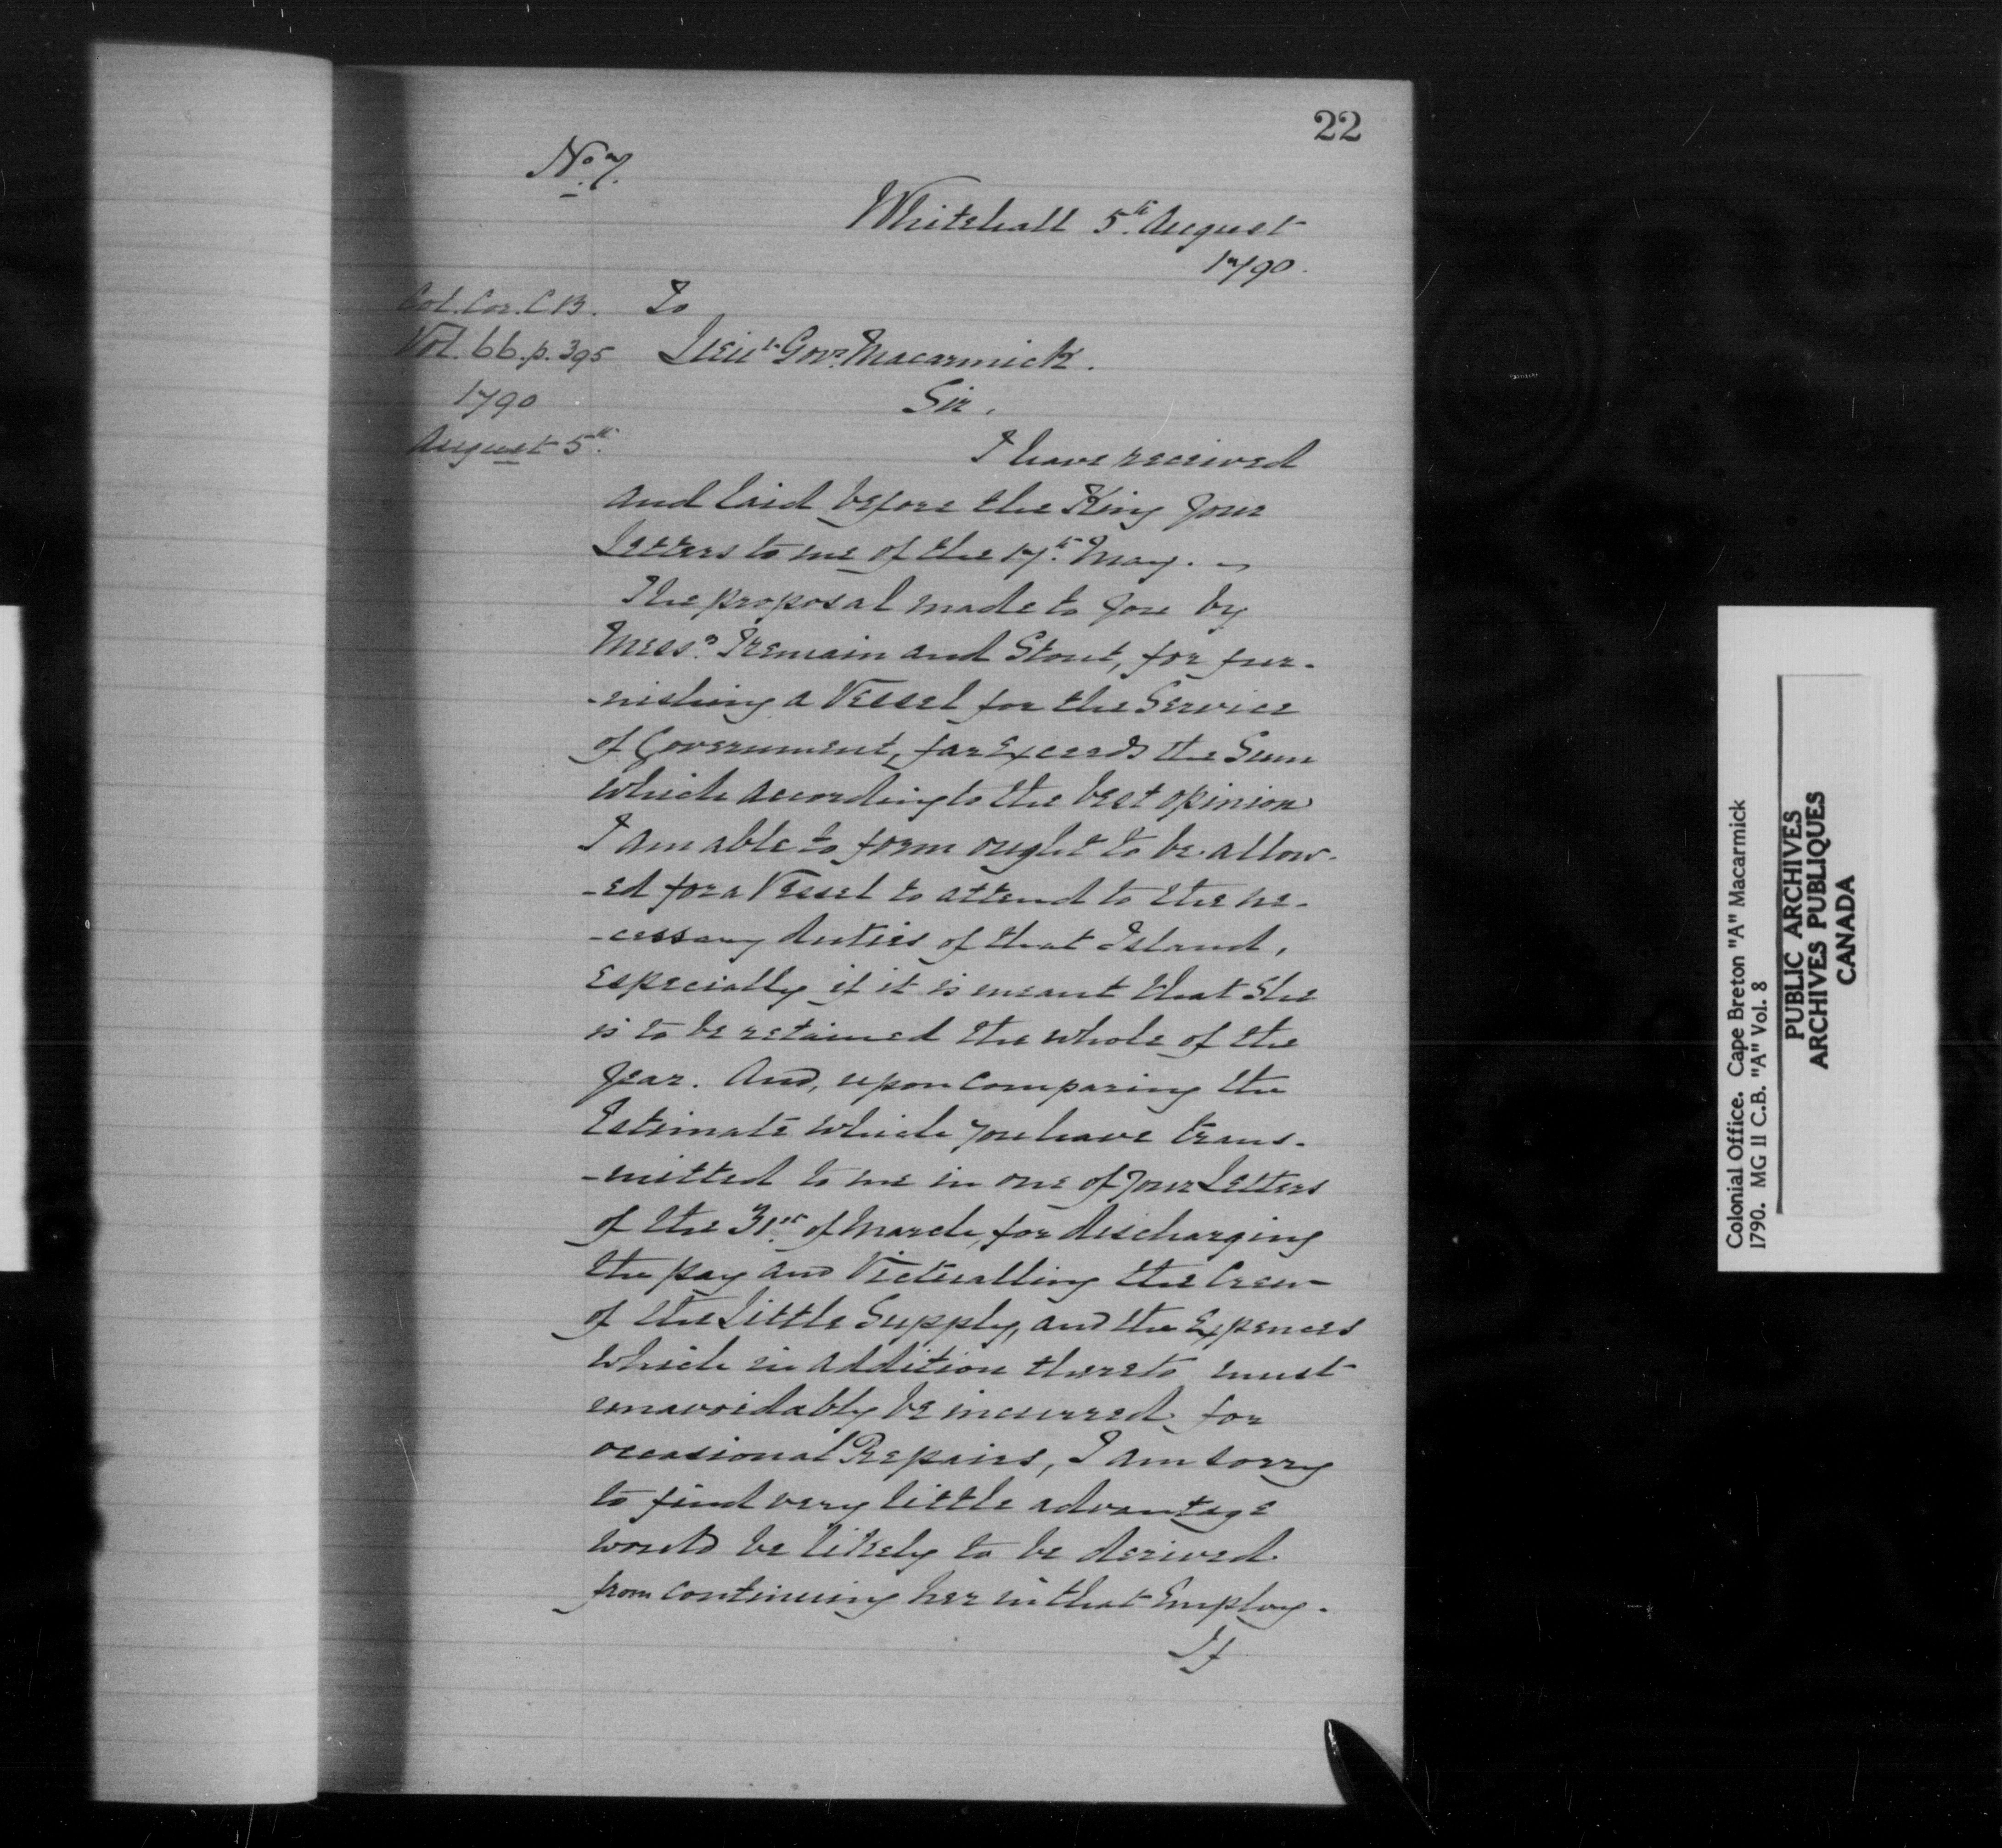 22
No. 7.
Whitehall 5th. August
1790.
Col. Cor. C.B.
Vol. 66. p. 395
1790
August 5th.
To
Lieut. Govr. Macarmick.
Sir,
I have received
and laid before the King your
Letters to me of the 17th. May.
The proposal made to you by
Messrs. Tremain and Stout, for fur-
-nishing a Vessel for the Service
of Government, far Exceeds the Sum
which according to the best opinion
I am able to form ought to be allow-
-ed for a Vessel to attend to the ne-
-cessary duties of that Island,
Especially if it is meant that She
is to be retained the whole of the
Year. And, upon comparing the
Estimate which you have trans-
-mitted to me in one of your Letters
of the 31st. of March, for discharging
the pay and Victualling the Crew
of the Little Supply, and the Expences
which in addition thereto must
unavoidably be incurred for
occasional Repairs, I am sorry
to find very little advantage
would be likely to be derived
from continuing her in that Employ.
If
Colonial Office. Cape Breton "A" Macarmick
1790. MG 11 C.B. "A" Vol. 8
PUBLIC ARCHIVES
ARCHIVES PUBLIQUES
CANADA